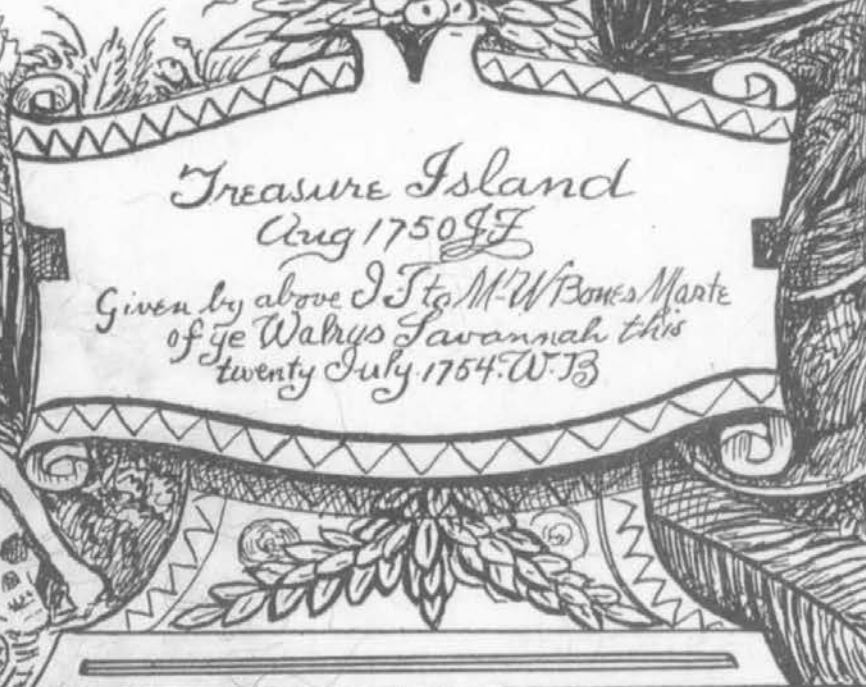 Treasure Island
Aug 1750 J F
Given by above J F to Mr W Bones Marte
of ye Walrys Savannah this
twenty July 1754. W. B